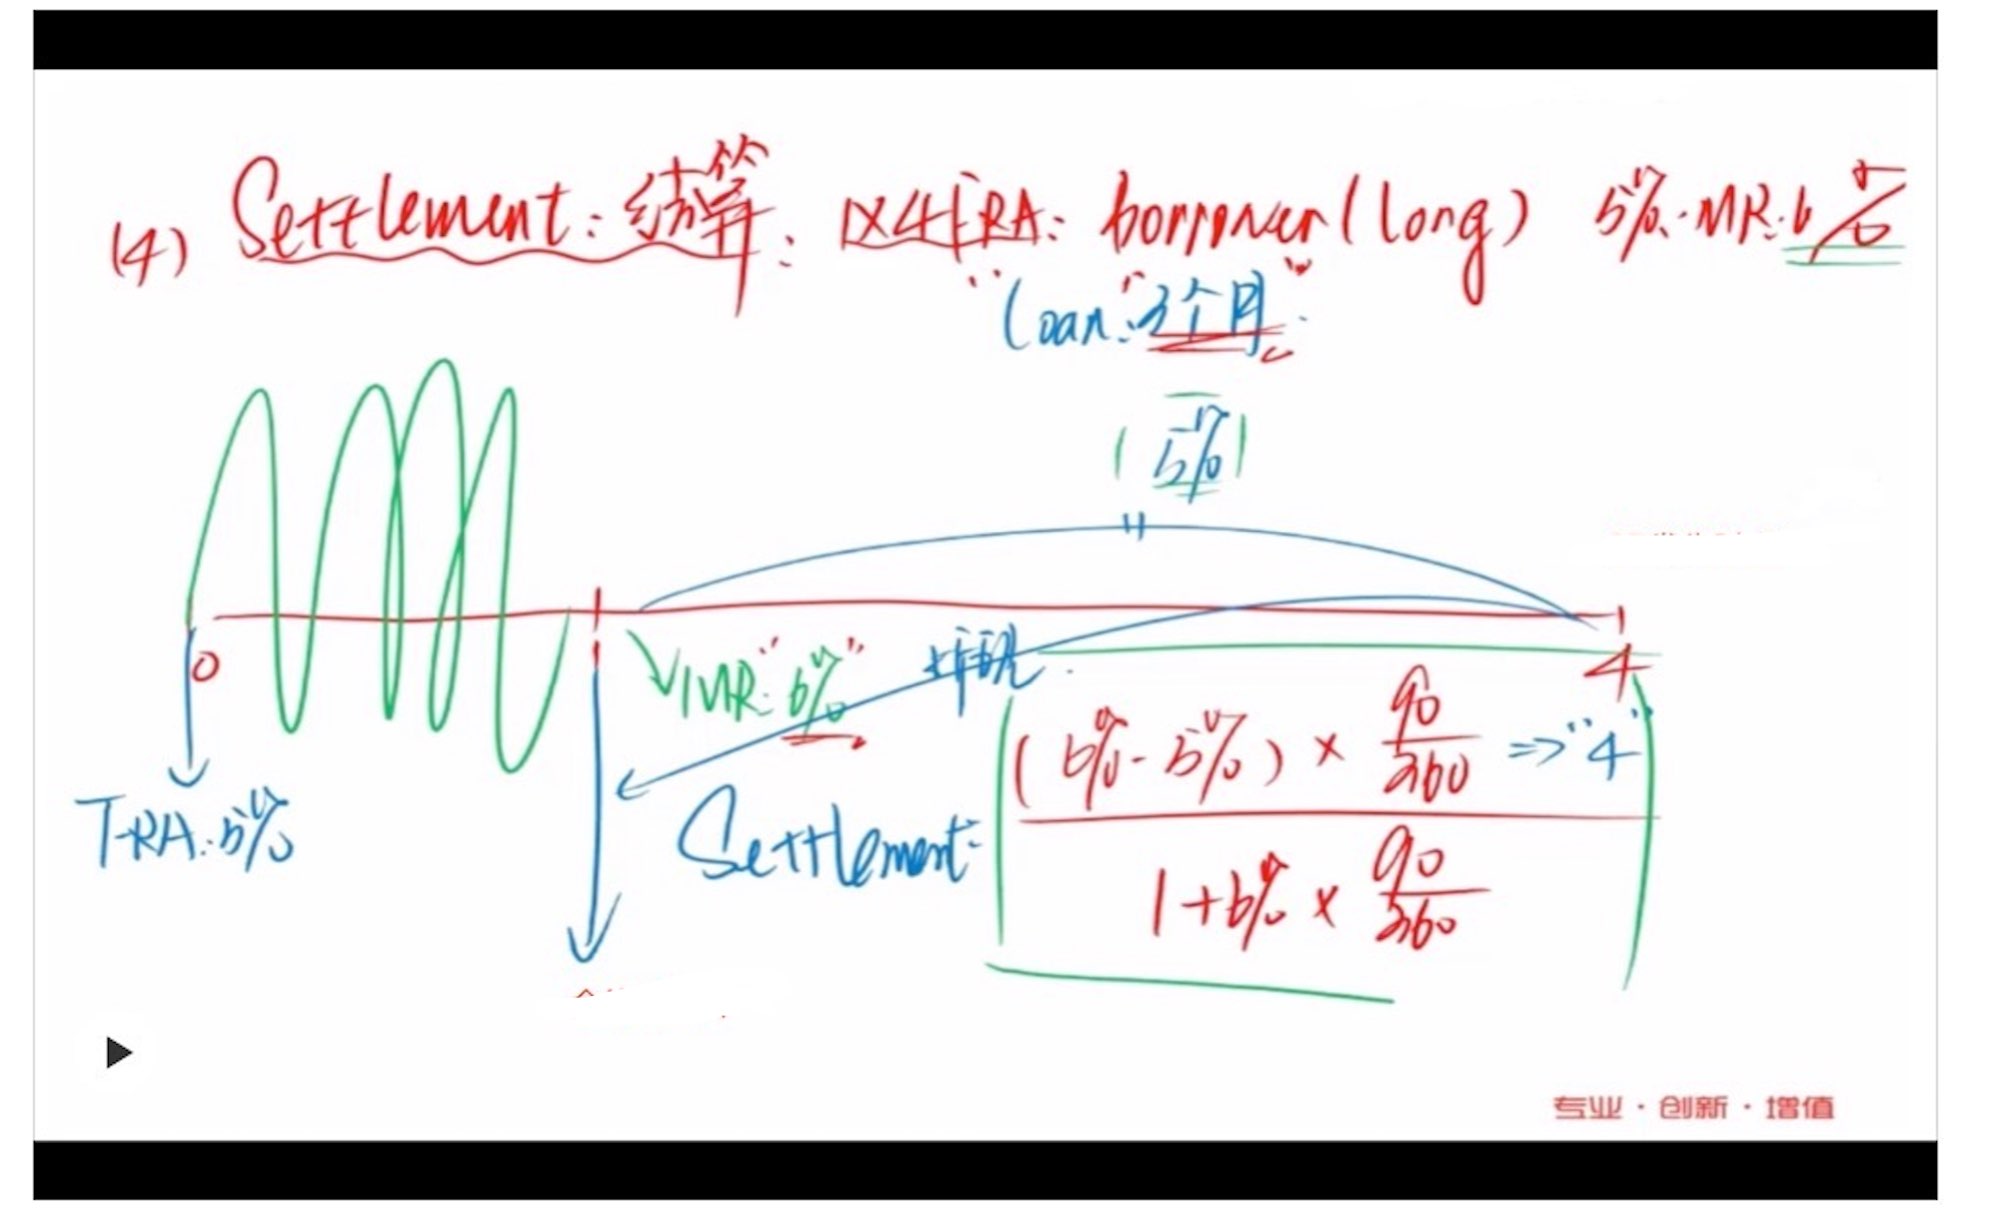 (4) Settlement: 结算: 1×4FRA: borrower(long) 5%. MR: 6%
"Loan": 3个月.
5%
0
4
MR: "6%"
折现.
FRA: 5%
Settlement:
(6% - 5%) × 90/360 => "4"
1+6% × 90/360
专业·创新·增值